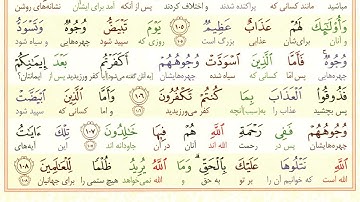 مانند کسانی که پراکنده شدند و اختلاف کردند پس از آنکه آمد برای ایشان نشانه‌های روشن
وَأُولَٰئِكَ لَهُمْ عَذَابٌ عَظِيمٌ ١٠٥ يَوْمَ تَبْيَضُّ وُجُوهٌ وَتَسْوَدُّ
و آنان برای‌شان عذابی بزرگ است ١٠٥ روزی که سپید شود چهره‌هایی و سیاه شود
وُجُوهٌ فَأَمَّا الَّذِينَ اسْوَدَّتْ وُجُوهُهُمْ أَكَفَرْتُم بَعْدَ إِيمَانِكُمْ
چهره‌هایی و اما کسانی که سیاه شده چهره‌هایشان آیا کفر ورزیدید پس از ایمانتان؟
فَذُوقُوا الْعَذَابَ بِمَا كُنتُمْ تَكْفُرُونَ ١٠٦ وَأَمَّا الَّذِينَ ابْيَضَّتْ
پس بچشید عذاب را کفر می‌ورزیدید ١٠٦ و اما کسانی که سپید شود
وُجُوهُهُمْ فَفِي رَحْمَةِ اللَّهِ هُمْ فِيهَا خَالِدُونَ ١٠٧ تِلْكَ آيَاتُ
چهره‌هایشان پس در رحمت الله‌اند آنان در آن جاودانه اند ١٠٧ این آیه‌های
اللَّهِ نَتْلُوهَا عَلَيْكَ بِالْحَقِّ وَمَا اللَّهُ يُرِيدُ ظُلْمًا لِّلْعَالَمِينَ ١٠٨
الله است که خوانیم آن را بر تو به حق و الله نمی‌خواهد هیچ ستمی را برای جهانیان ١٠٨